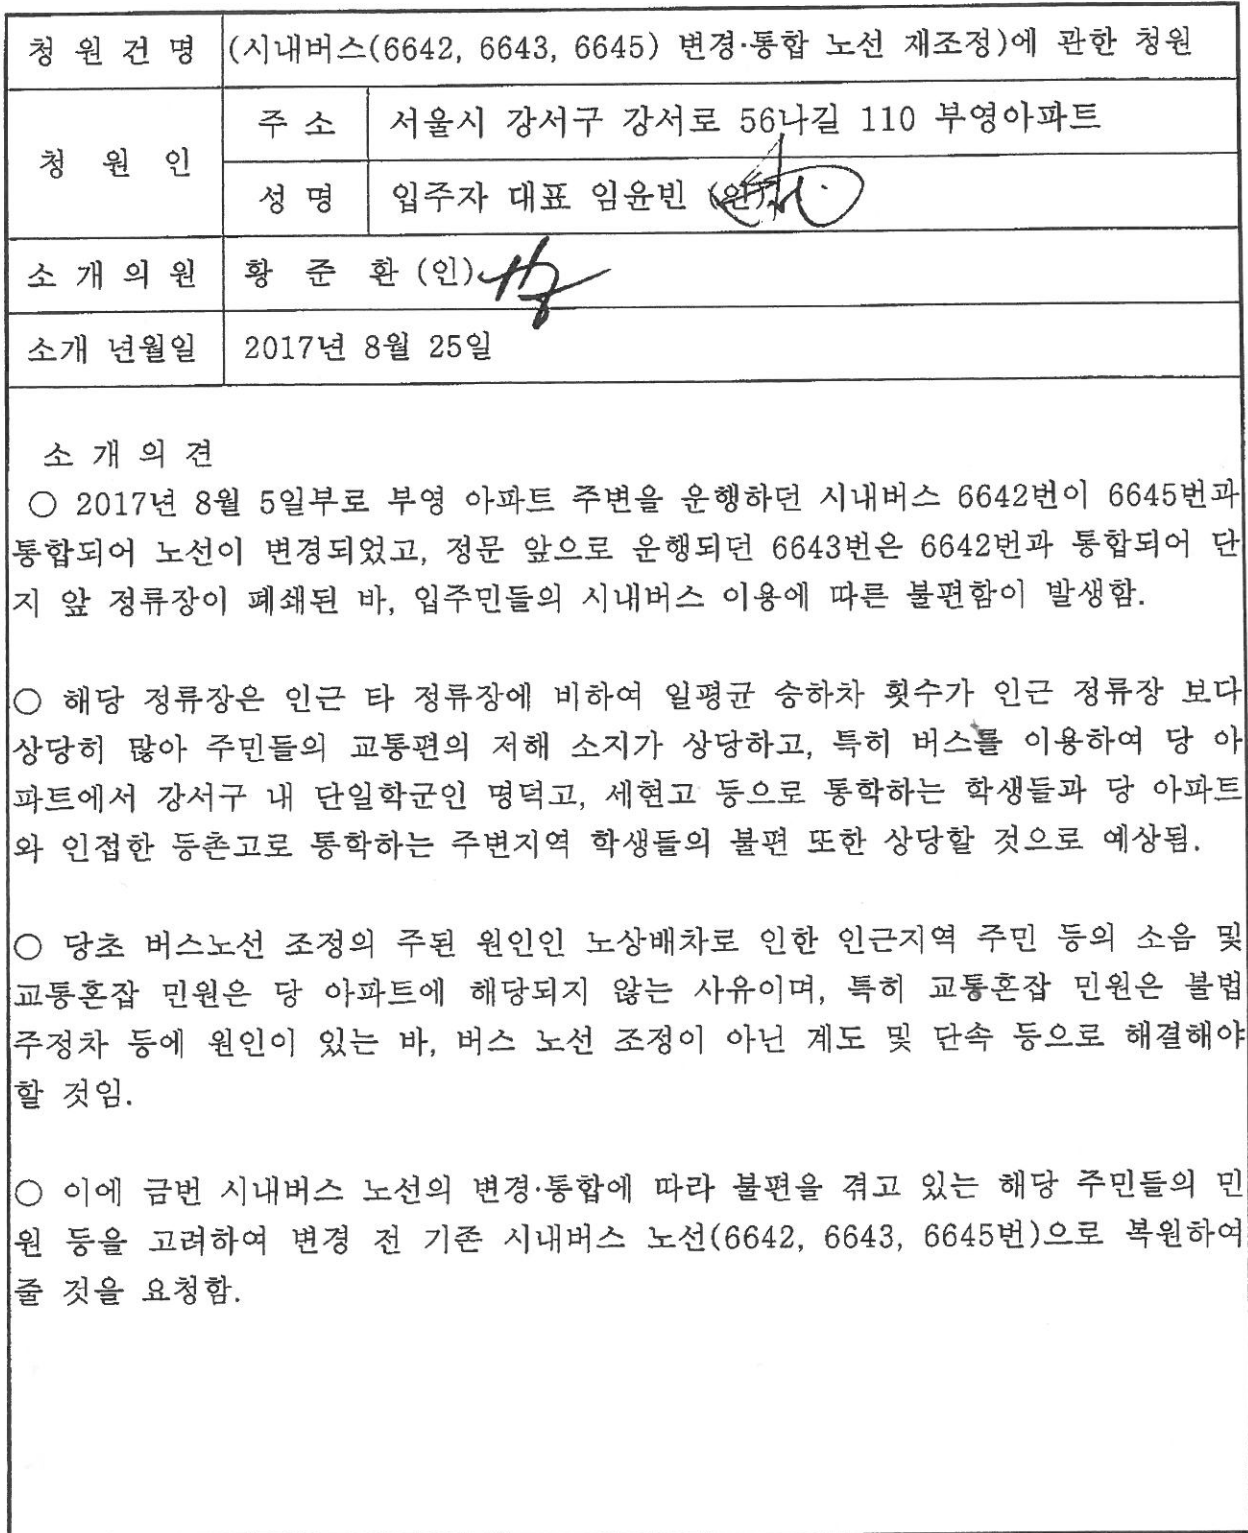 청 원 건 명 (시내버스(6642, 6643, 6645) 변경·통합 노선 재조정)에 관한 청원
청 원 인
주 소 서울시 강서구 강서로 56나길 110 부영아파트
성 명 입주자 대표 임윤빈 (인)
소 개 의 원 황 준 환 (인)
소개 년월일 2017년 8월 25일
소 개 의 견
○ 2017년 8월 5일부로 부영 아파트 주변을 운행하던 시내버스 6642번이 6645번과
통합되어 노선이 변경되었고, 정문 앞으로 운행되던 6643번은 6642번과 통합되어 단
지 앞 정류장이 폐쇄된 바, 입주민들의 시내버스 이용에 따른 불편함이 발생함.
○ 해당 정류장은 인근 타 정류장에 비하여 일평균 승하차 횟수가 인근 정류장 보다
상당히 많아 주민들의 교통편의 저해 소지가 상당하고, 특히 버스를 이용하여 당 아
파트에서 강서구 내 단일학군인 명덕고, 세현고 등으로 통학하는 학생들과 당 아파트
와 인접한 등촌고로 통학하는 주변지역 학생들의 불편 또한 상당할 것으로 예상됨.
○ 당초 버스노선 조정의 주된 원인인 노상배차로 인한 인근지역 주민 등의 소음 및
교통혼잡 민원은 당 아파트에 해당되지 않는 사유이며, 특히 교통혼잡 민원은 불법
주정차 등에 원인이 있는 바, 버스 노선 조정이 아닌 계도 및 단속 등으로 해결해야
할 것임.
○ 이에 금번 시내버스 노선의 변경·통합에 따라 불편을 겪고 있는 해당 주민들의 민
원 등을 고려하여 변경 전 기존 시내버스 노선(6642, 6643, 6645번)으로 복원하여
줄 것을 요청함.